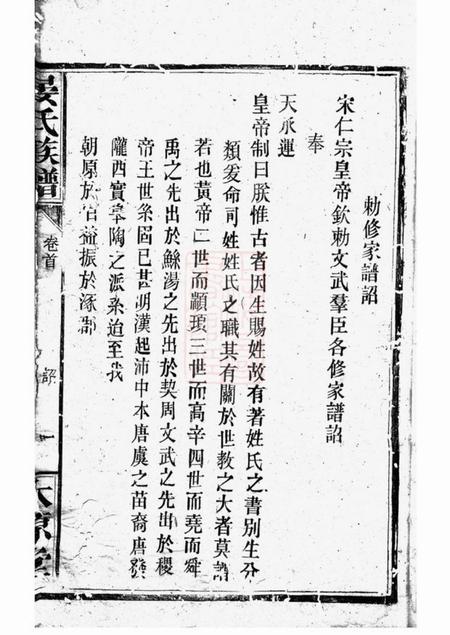 勅修家譜詔
宋仁宗皇帝欽勅文武羣臣各修家譜詔
奉
天承運
皇帝制曰朕惟古者因生賜姓故有著姓氏之書別生分
類爰命司姓姓氏之職其有關於世教之大者莫
若也黃帝二世而顓頊三世而高辛四世而堯而舜
禹之先出於鯀湯之先出於契周文武之先出於稷
帝王世系固已甚明漢起沛中本唐虞之苗裔唐
隴西實臯陶之派系迨至我
朝原於官益振於涿郡
晏氏族譜
卷首
詔
一
太原堂